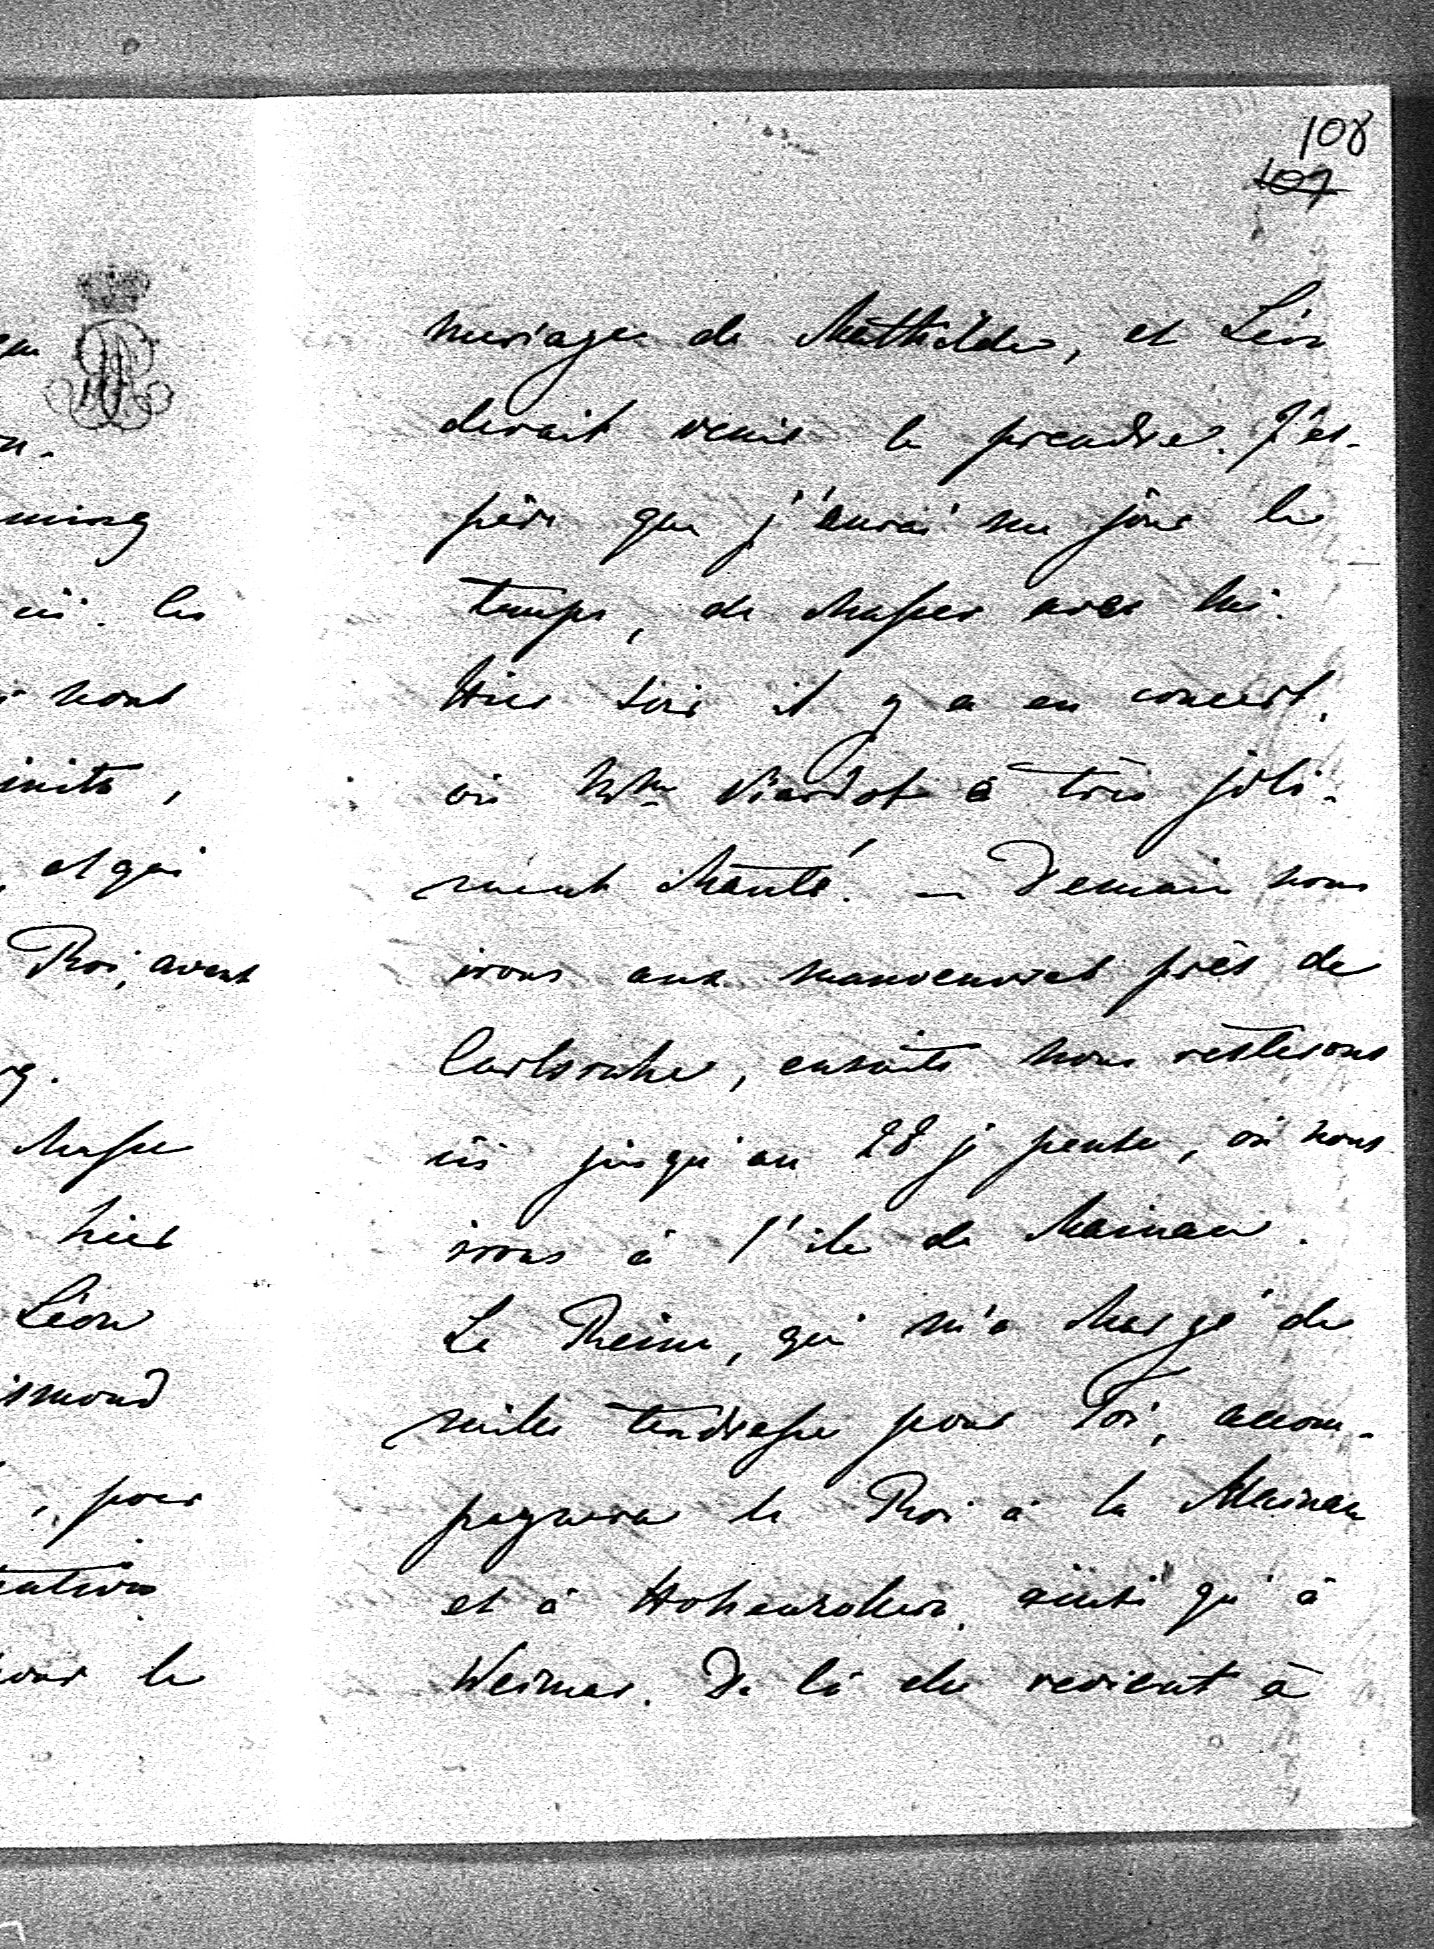 108
107
mariage de Mathilde, et Léon
devait venir le prendre. J'es-
père que j'aurai un jour le
temps, de chasser avec lui.
Hier soir il y a eu concert,
où Mme Viardot a très joli-
ment chanté. — Demain nous
irons aux manoeuvres près de
Carlsruhe, ensuite nous resterons
ici jusqu'au 28 j pense, où nous
irons à l'ile de Mainau.
La Reine, qui m'a chargé de
milles tendresses pour Toi, accom-
pagnera le Roi à la Mainau
et à Hohenzollern, ainsi qu'à
Weimar. De là elle revient à
ici les
nous
et qui
Roi, avant
chasse
hier
Léon
, pour
pour le